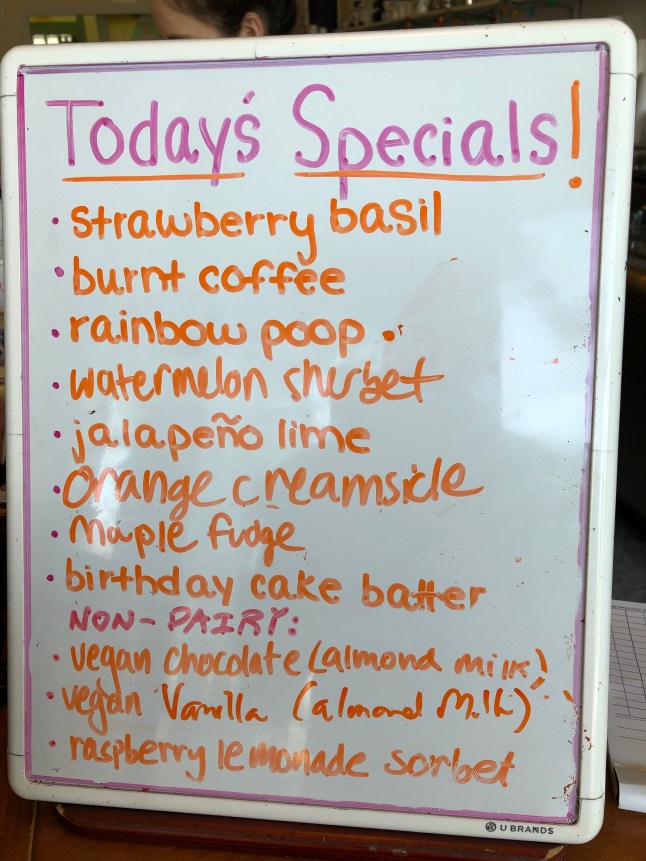 Today's Specials!
• strawberry basil
• burnt coffee
• rainbow poop
• watermelon sherbet
• jalapeño lime
• Orange creamsicle
• Maple fudge
• birthday cake batter
NON-DAIRY:
• vegan chocolate (almond milk)
• vegan Vanilla (almond Milk)
• raspberry lemonade sorbet
U BRANDS